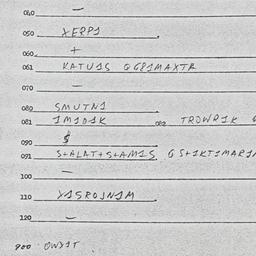 040 —
050 XERPJ
060 +
061 KATU1S QG81MAXTR
070 —
080 SMUTNJ
081 JM1D1K 082 TROWR1K
090 $
091 S+ALAT+S+AM1S G S+1KT1MAR1
100 —
110 XJSROJNJM
120 —
900 OWX1T